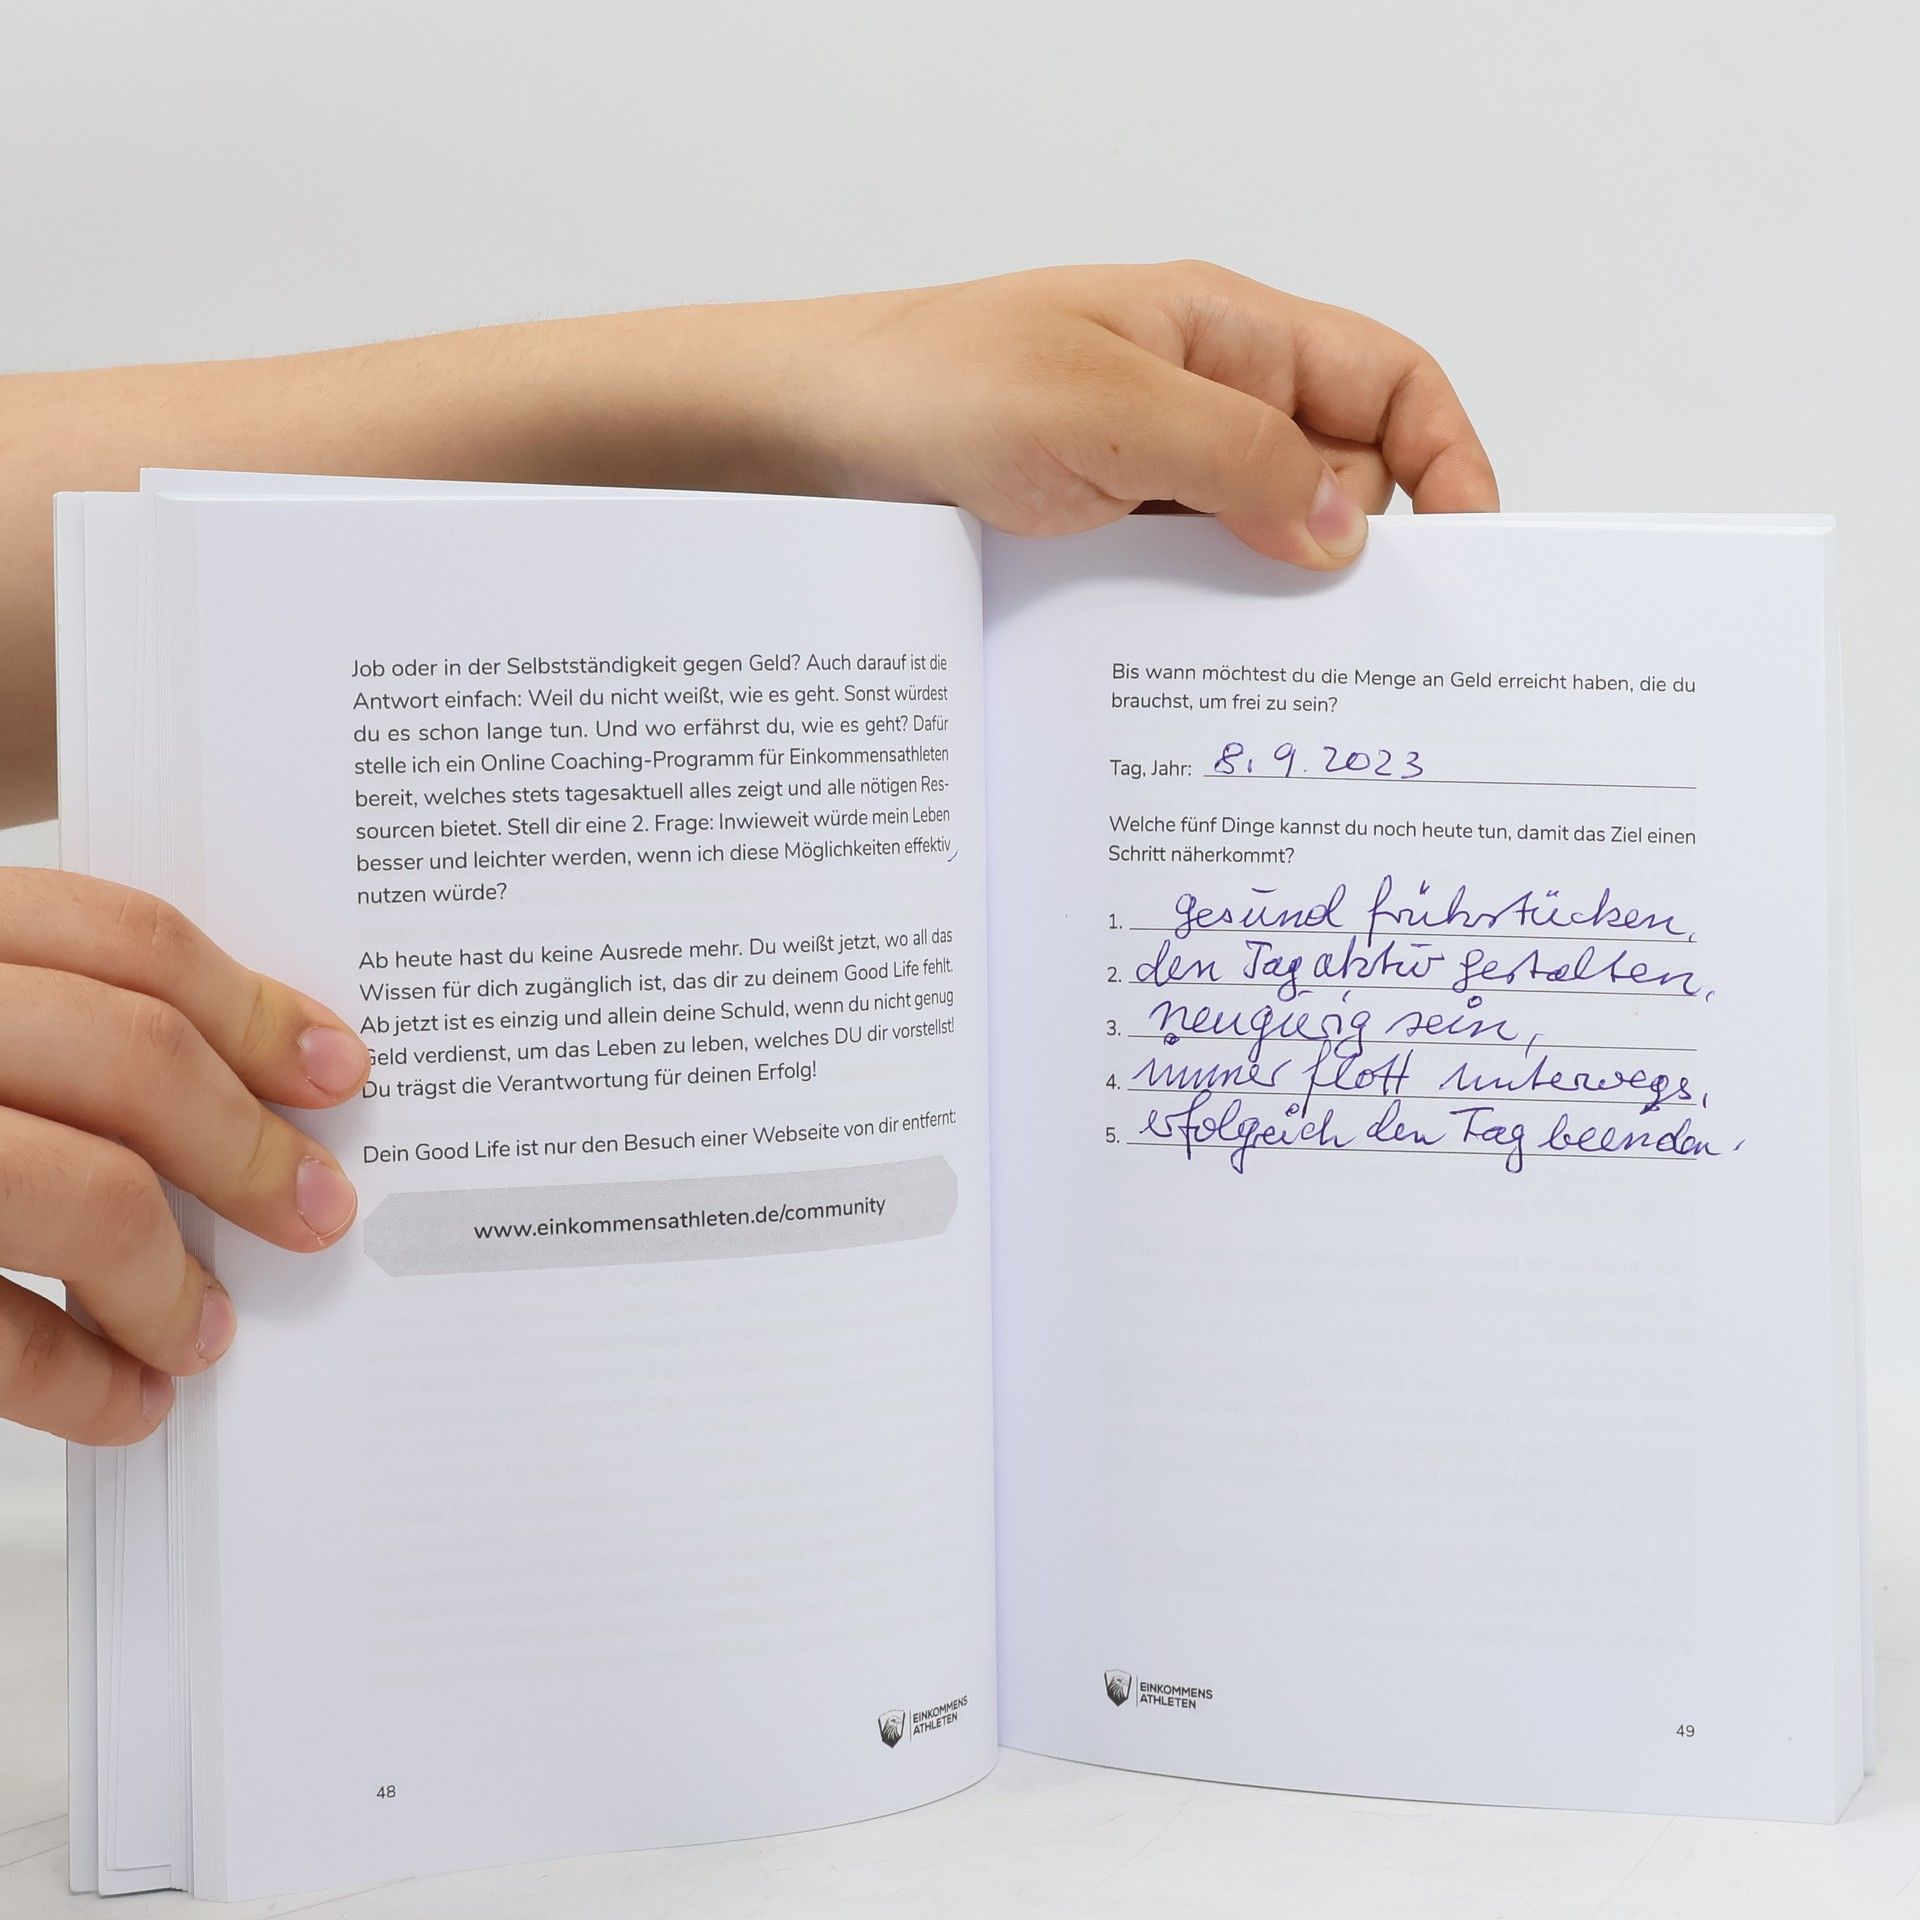 Job oder in der Selbstständigkeit gegen Geld? Auch darauf ist die
Antwort einfach: Weil du nicht weißt, wie es geht. Sonst würdest
du es schon lange tun. Und wo erfährst du, wie es geht? Dafür
stelle ich ein Online Coaching-Programm für Einkommensathleten
bereit, welches stets tagesaktuell alles zeigt und alle nötigen Res-
sourcen bietet. Stell dir eine 2. Frage: Inwieweit würde mein Leben
besser und leichter werden, wenn ich diese Möglichkeiten effektiv
nutzen würde?
Ab heute hast du keine Ausrede mehr. Du weißt jetzt, wo all das
Wissen für dich zugänglich ist, das dir zu deinem Good Life fehlt.
Ab jetzt ist es einzig und allein deine Schuld, wenn du nicht genug
Geld verdienst, um das Leben zu leben, welches DU dir vorstellst!
Du trägst die Verantwortung für deinen Erfolg!
Dein Good Life ist nur den Besuch einer Webseite von dir entfernt:
www.einkommensathleten.de/community
EINKOMMENS
ATHLETEN
48
Bis wann möchtest du die Menge an Geld erreicht haben, die du
brauchst, um frei zu sein?
Tag, Jahr: 8. 9. 2023
Welche fünf Dinge kannst du noch heute tun, damit das Ziel einen
Schritt näherkommt?
1. gesund frühstücken,
2. den Tag aktiv gestalten,
3. neugierig sein,
4. immer flott unterwegs,
5. erfolgreich den Tag beenden.
EINKOMMENS
ATHLETEN
49